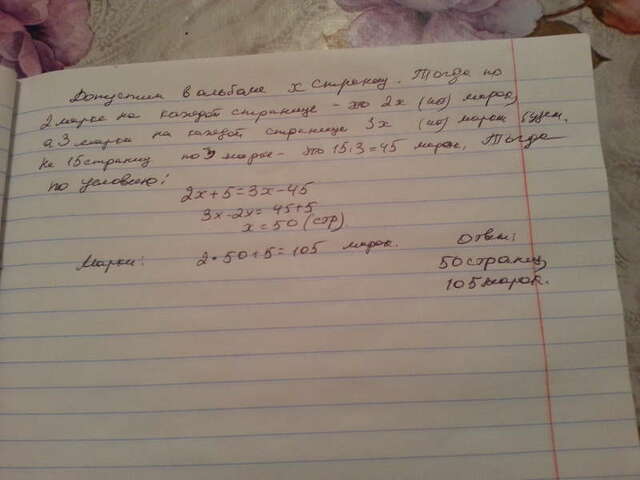 Допустим в альбоме x страниц. Тогда по
2 марки на каждой странице - это 2x (шт) марок,
а 3 марки на каждой странице 3x (шт) марок будет.
На 15 страниц по 3 марке - это 15·3=45 марок. Тогда
по условию:
2x+5=3x-45
3x-2x=45+5
x=50 (стр)
Марки: 2·50+5=105 марок.
Ответ:
50 страниц,
105 марок.